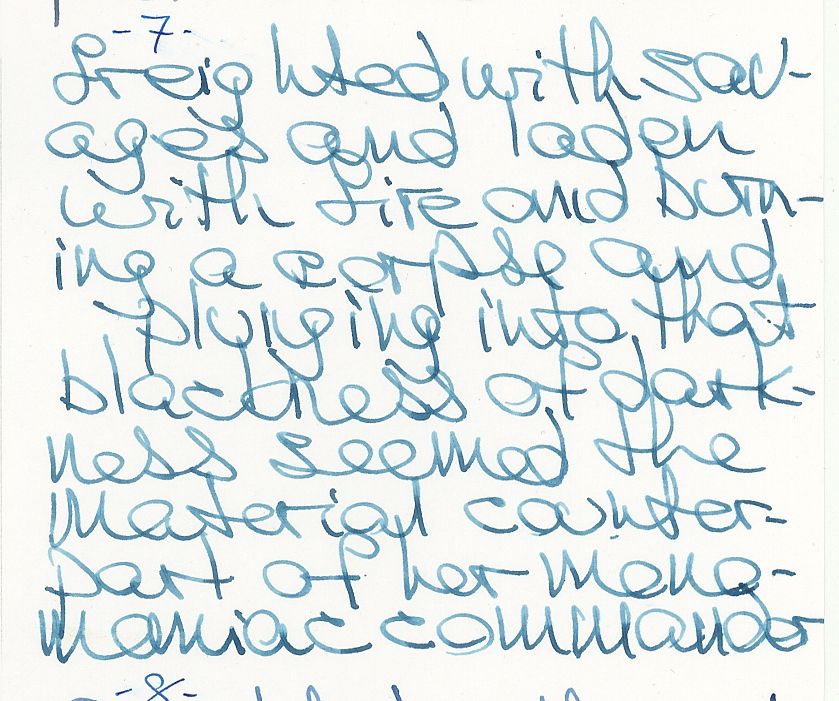 -7-
freighted with sav-
ages and laden
with fire and burn-
ing a corpse and
plunging into that
blackness of dark-
ness seemed the
material counter-
part of her mono-
maniac commander
-8-